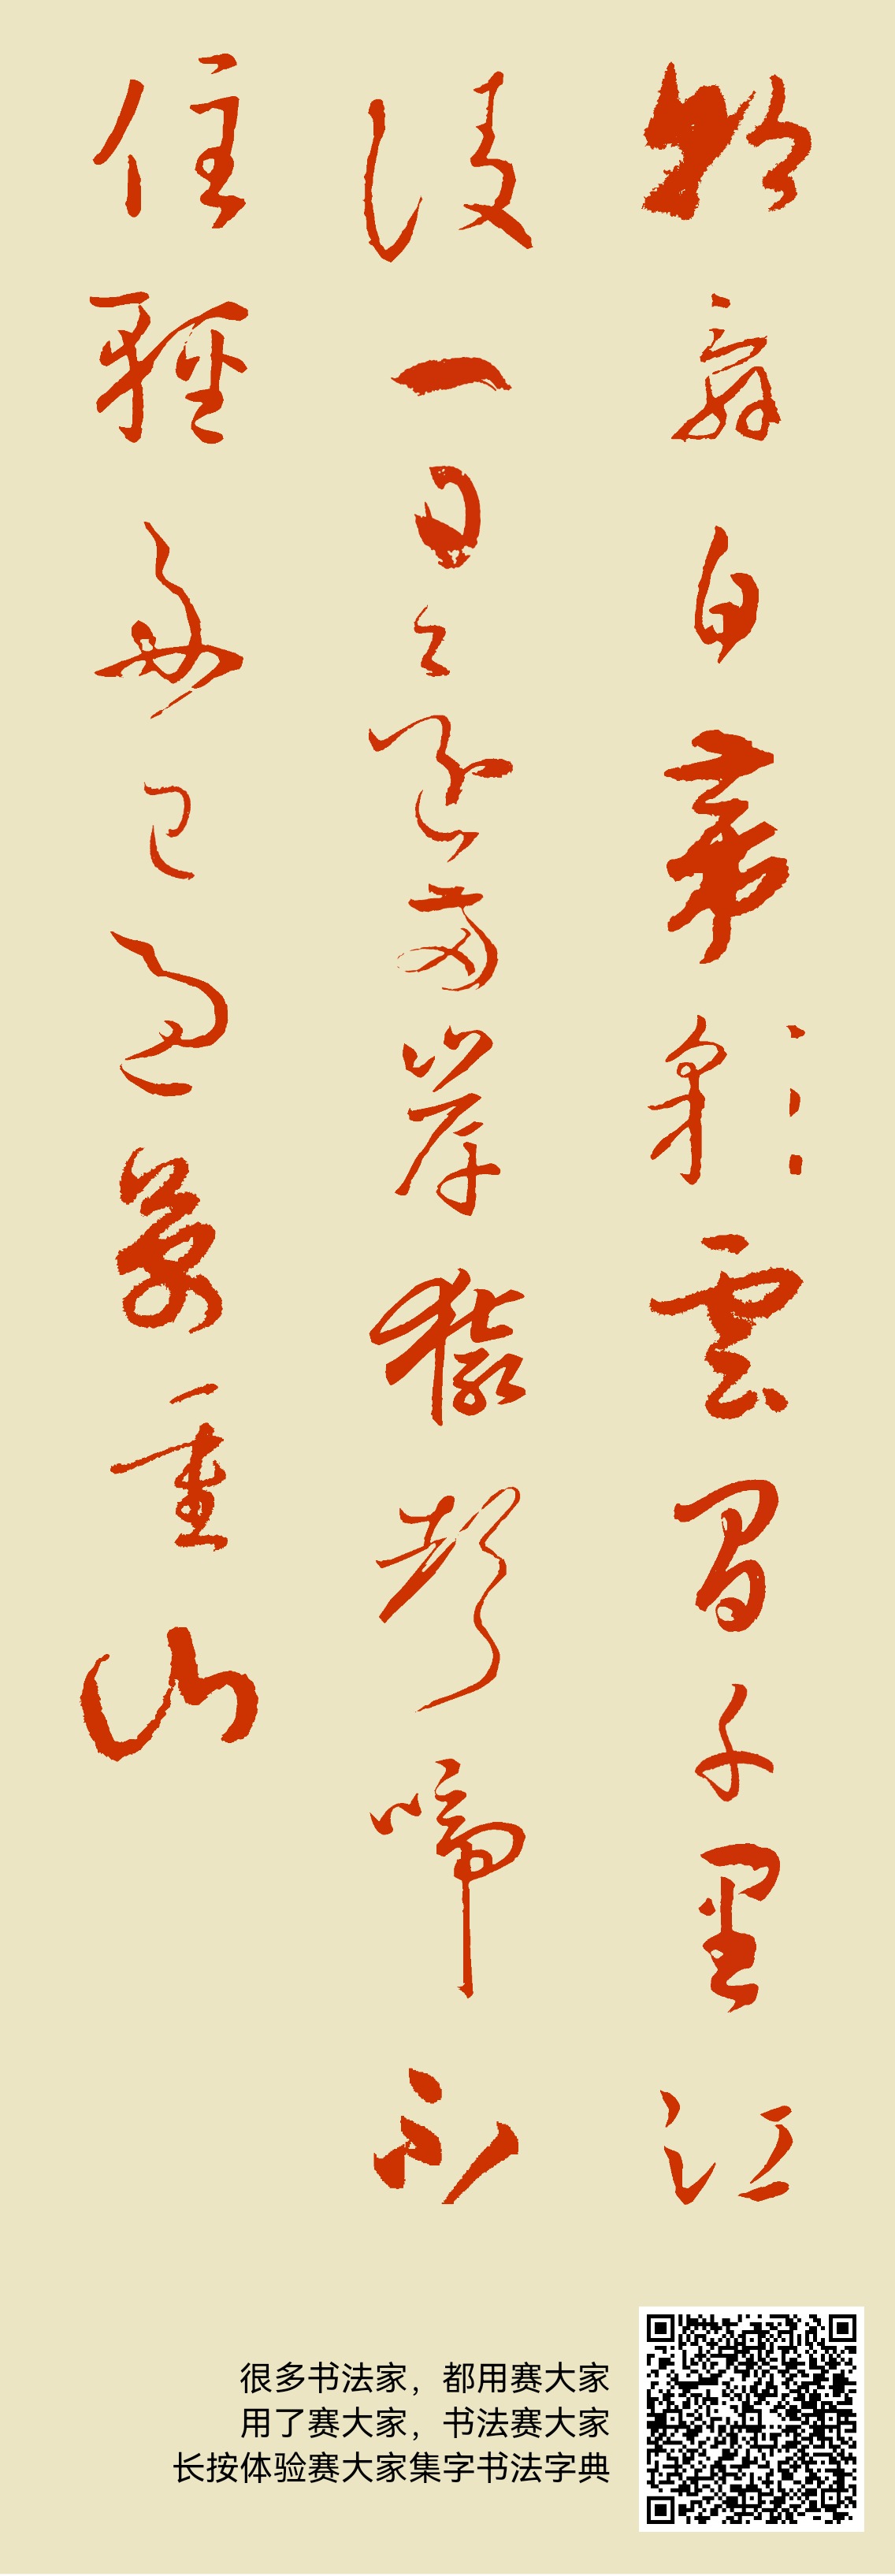 朝辭白帝彩雲間千里江
陵一日還兩岸猿聲啼不
住輕舟已過萬重山
很多书法家，都用赛大家
用了赛大家，书法赛大家
长按体验赛大家集字书法字典